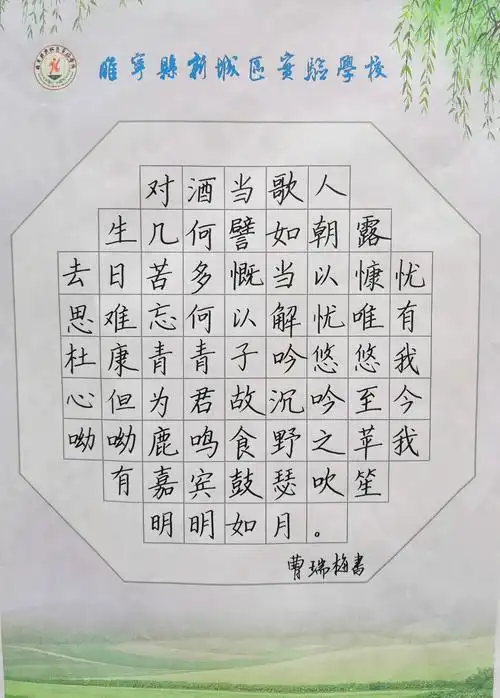 睢宁县新城区实验学校
对酒当歌人
生几何譬如朝露
去日苦多慨当以慷忧
思难忘何以解忧唯有
杜康青青子吟悠悠我
心但为君故沉吟至今
呦呦鹿鸣食野之苹我
有嘉宾鼓瑟吹笙
明明如月。
曹瑞梅书